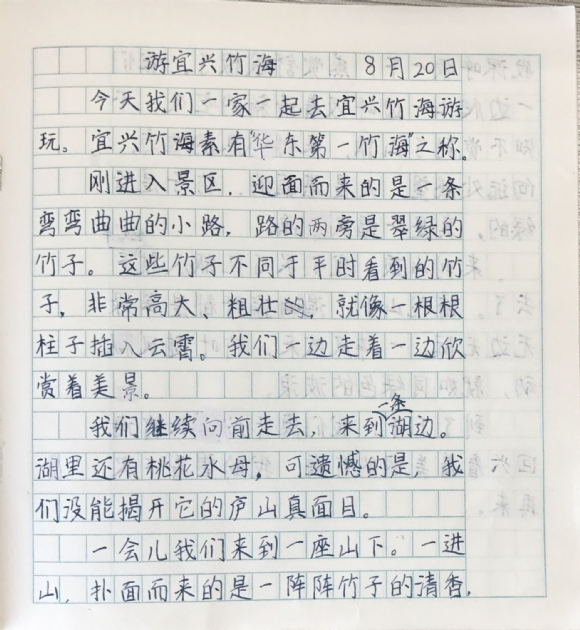 游宜兴竹海 8月20日
今天我们一家一起去宜兴竹海游
玩。宜兴竹海素有“华东第一竹海”之称。
刚进入景区，迎面而来的是一条
弯弯曲曲的小路，路的两旁是翠绿的
竹子。这些竹子不同于平时看到的竹
子，非常高大、粗壮的，就像一根根
柱子插入云霄。我们一边走着一边欣
赏着美景。
我们继续向前走去，来到一条湖边。
湖里还有桃花水母，可遗憾的是，我
们没能揭开它的庐山真面目。
一会儿我们来到一座山下。一进
山，扑面而来的是一阵阵竹子的清香，